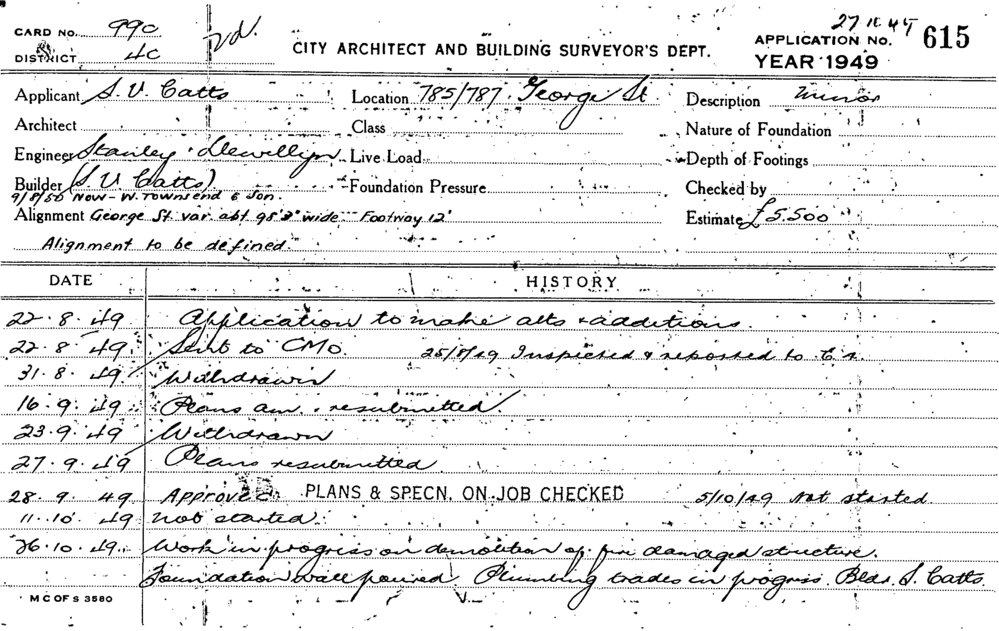 CARD No. 990 2d. 27 10 45
DISTRICT 4C CITY ARCHITECT AND BUILDING SURVEYOR'S DEPT. APPLICATION No. 615
YEAR 1949
Applicant S. V. Catts Location 785/787 George St Description minor
Architect Class Nature of Foundation
Engineer Stanley Llewillyn Live Load Depth of Footings
Builder (S V Catts) Foundation Pressure Checked by
9/8/50 Now - W. Townsend & Son.
Alignment George St. var. abt 98' 3" wide Footway 12' Estimate £5.500
Alignment to be defined
DATE HISTORY
22.8.49 Application to make alts & additions.
22.8.49 Sent to CMO. 25/8/49 Inspected & reported to
31.8.49 Withdrawn
16.9.49 Plans am. resubmitted.
23.9.49 Withdrawn
27.9.49 Plans resubmitted
28.9.49 Approved PLANS & SPECN. ON JOB CHECKED 5/10/49 Not started
11.10.49 Not started.
26.10.49. Work in progress on demolition of fire damaged structure.
Foundation wall poured Plumbing trades in progress. Bldr. S. Catts.
M C OF S 3580